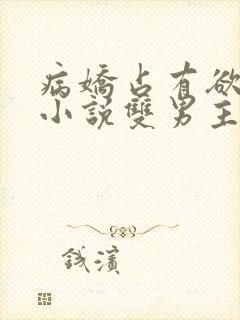 病嬌占有欲
小說雙男主
錢濱